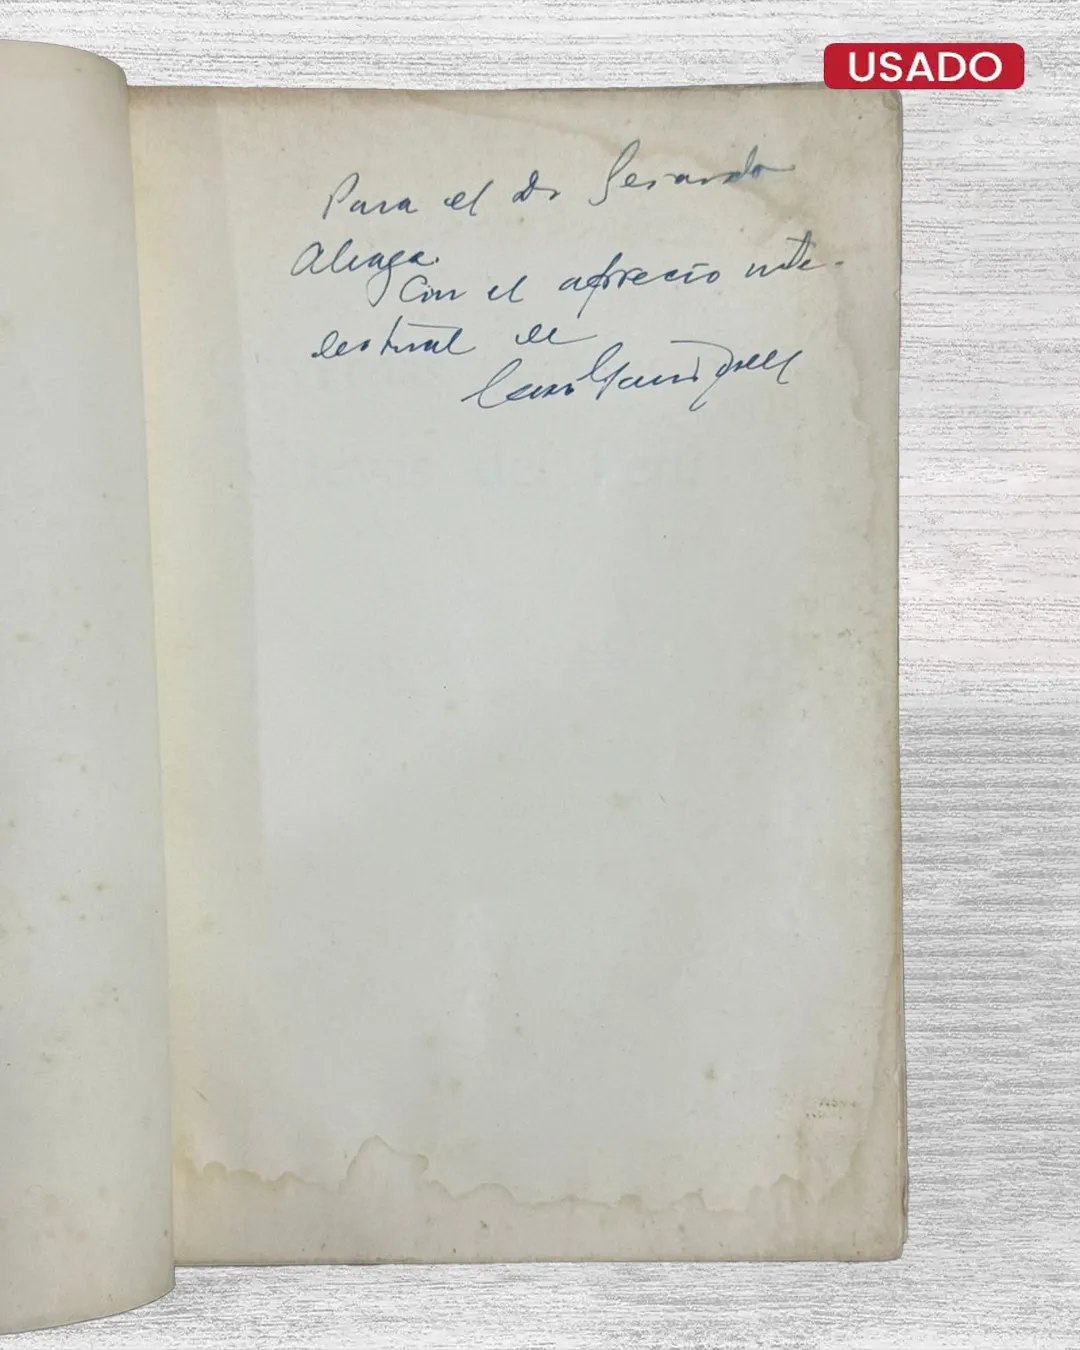 USADO
Para el Dr Gerardo
Aliaga.
Con el aprecio inte-
lectual de